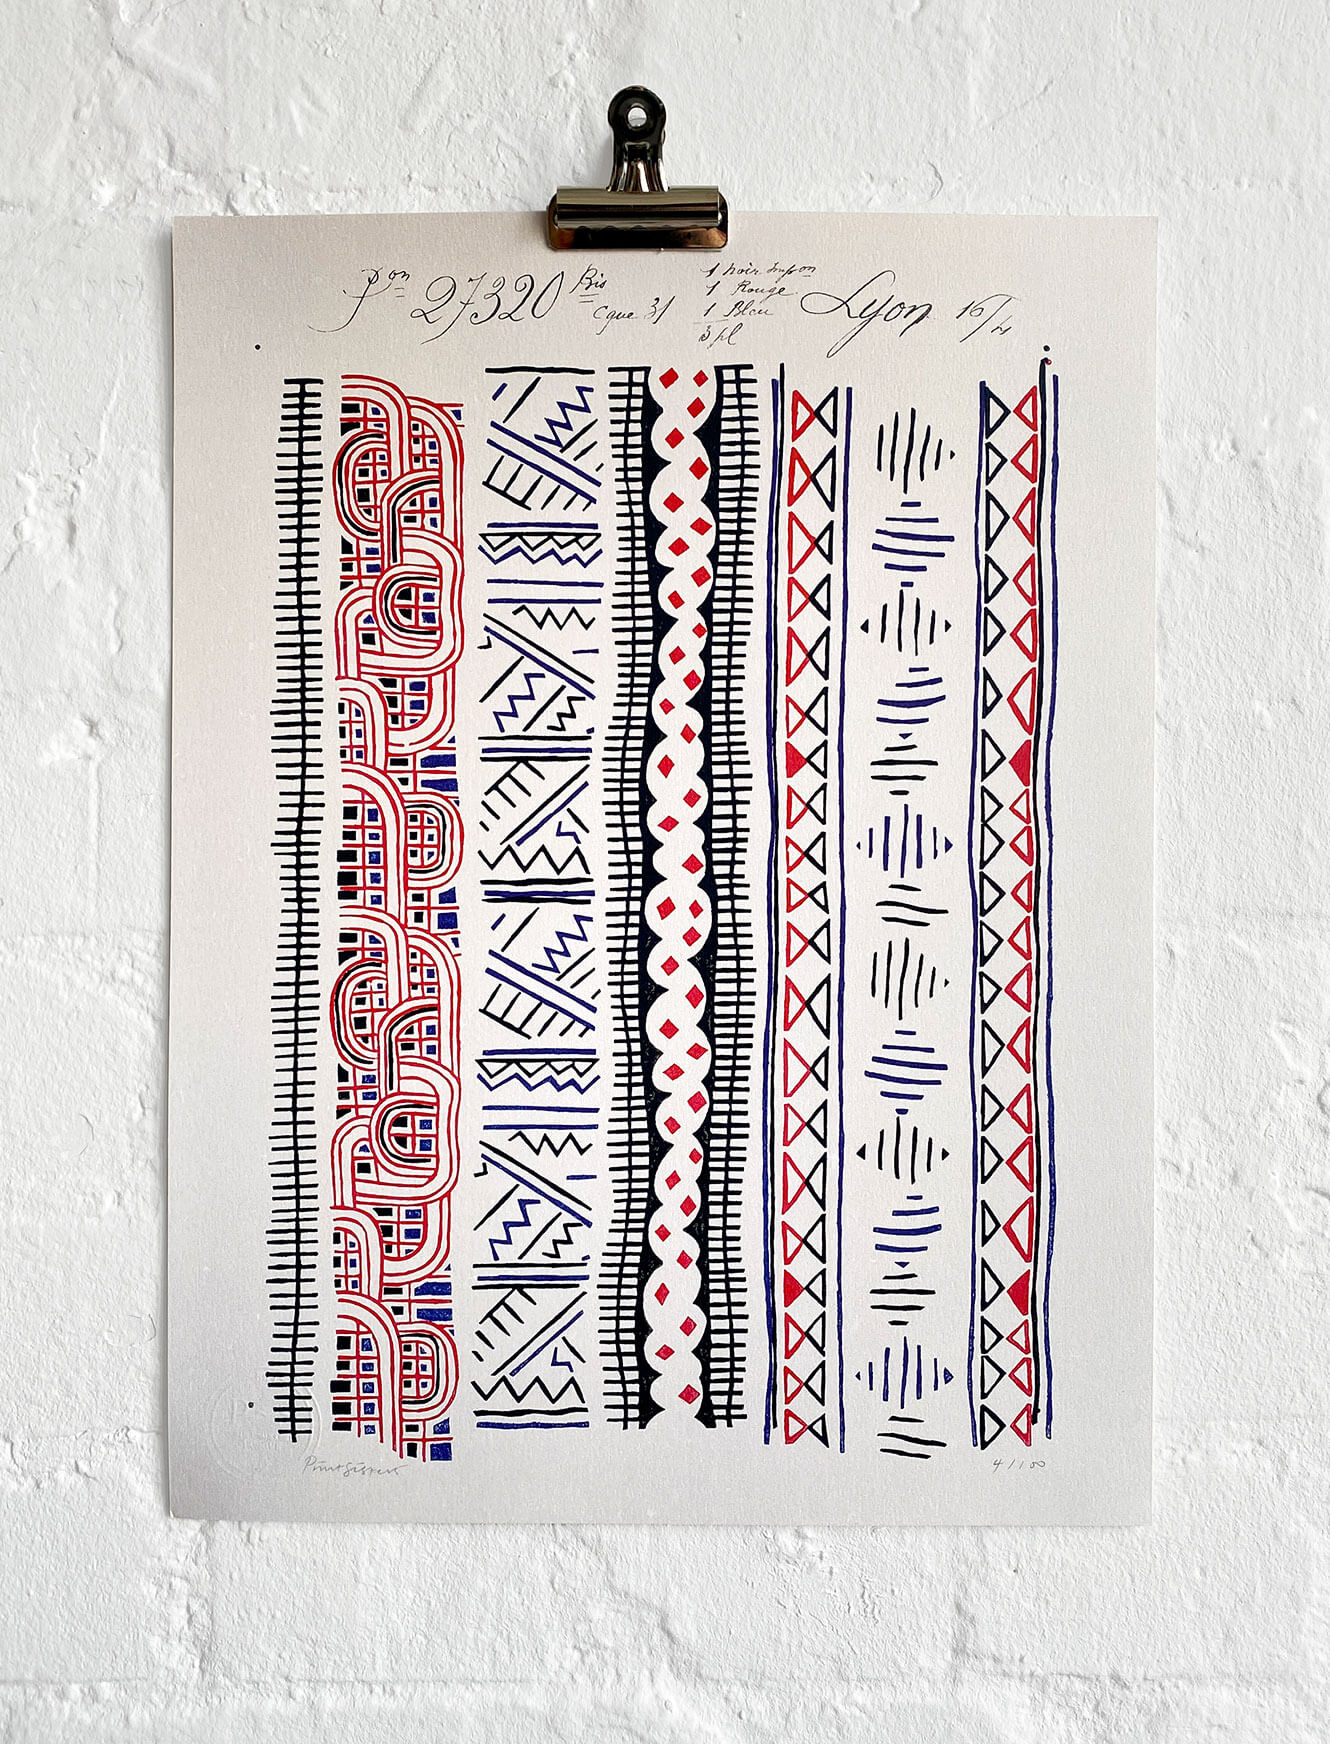 Pon 27320 Bis
Cque 31
1 noir Impon
1 Rouge
1 Bleu
3 pl
Lyon 16/4
PrintSisters
4/100